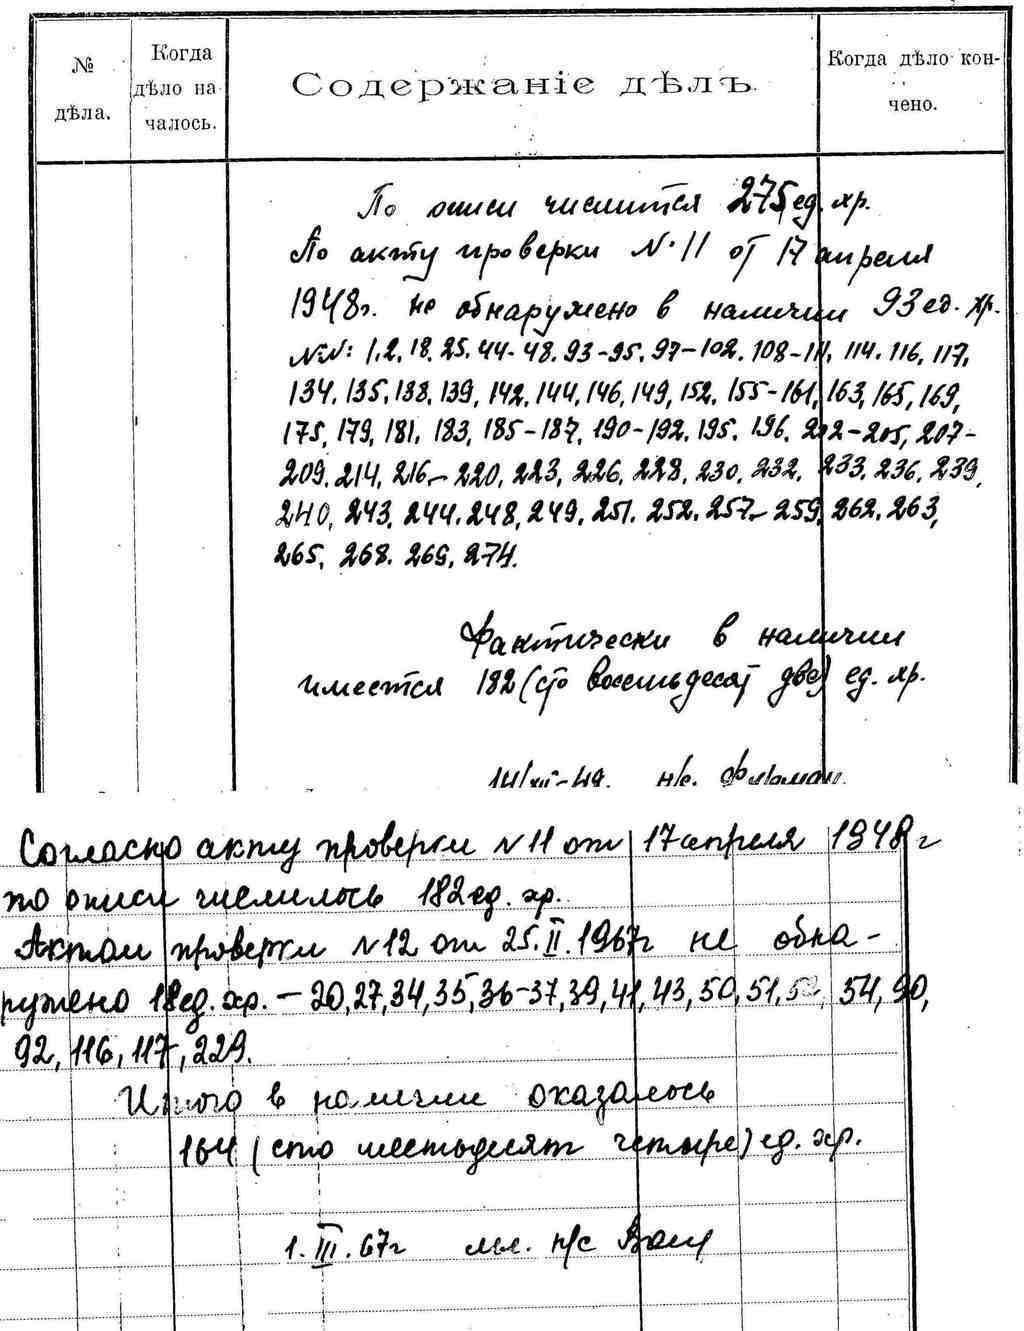 № дѣла.
Когда дѣло началось.
Содержаніе дѣлъ.
Когда дѣло кончено.
По описи числится 275 ед. хр.
По акту проверки №11 от 17 апреля
1948г. не обнаружено в наличии 93 ед. хр.
№№: 1, 2, 18, 25, 44-48, 93-95, 97-102, 108-111, 114, 116, 117,
134, 135, 138, 139, 142, 144, 146, 149, 152, 155-161, 163, 165, 169,
175, 179, 181, 183, 185-187, 190-192, 195, 196, 202-205, 207-
209, 214, 216-220, 223, 226, 228, 230, 232, 233, 236, 239,
240, 243, 244, 248, 249, 251, 252, 257-259, 262, 263,
265, 268, 269, 274.
Фактически в наличии
имеется 182 (сто восемьдесят две) ед. хр.
н/с.
Согласно акту проверки №11 от 17 апреля 1948 г
по описи числилось 182 ед. хр.
Актом проверки №12 от 25.II.1967г не обна-
ружено 18 ед. хр. - 20, 27, 34, 35, 36-37, 39, 41, 43, 50, 51, 54, 90,
92, 116, 117, 229.
Итого в наличии оказалось
164 (сто шестьдесят четыре) ед. хр.
1.III.67г мл. н/с